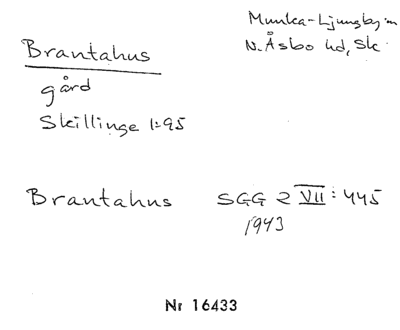 Munka-Ljungby sn
N. Åsbo hd, Sk.
Brantahus
gård
Skillinge 1:95
Brantahus SGG 2 VII: 445
1943
Nr 16433